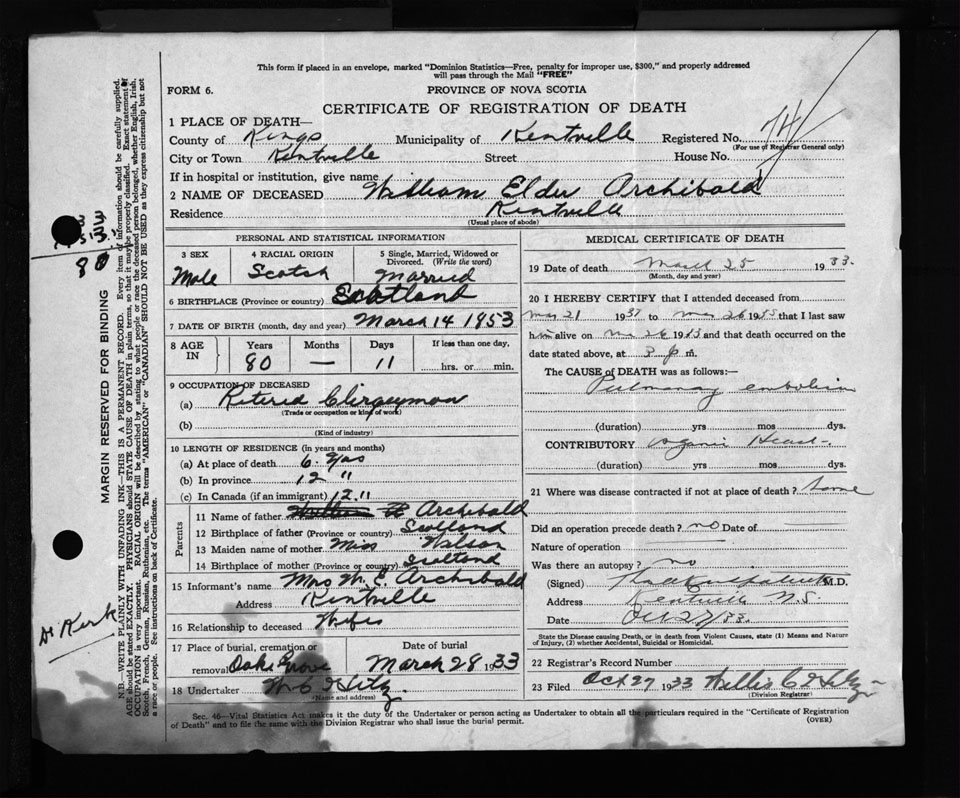 This form if placed in an envelope, marked "Dominion Statistics—Free, penalty for improper use, $300," and properly addressed
will pass through the Mail "FREE"
FORM 6.
PROVINCE OF NOVA SCOTIA
CERTIFICATE OF REGISTRATION OF DEATH
1 PLACE OF DEATH—
County of Kings Municipality of Kentville Registered No. 74
(For use of Registrar General only)
City or Town Kentville Street House No.
If in hospital or institution, give name
2 NAME OF DECEASED William Elder Archibald
Residence Kentville
(Usual place of abode)
PERSONAL AND STATISTICAL INFORMATION
3 SEX 4 RACIAL ORIGIN 5 Single, Married, Widowed or Divorced. (Write the word)
Male Scotch Married
6 BIRTHPLACE (Province or country) Scotland
7 DATE OF BIRTH (month, day and year) March 14 1953
8 AGE IN Years Months Days If less than one day,
80 — 11 hrs. or min.
9 OCCUPATION OF DECEASED
(a) Retired Clergyman
(Trade or occupation or kind of work)
(b)
(Kind of industry)
10 LENGTH OF RESIDENCE (in years and months)
(a) At place of death 6 yrs
(b) In province 12 "
(c) In Canada (if an immigrant) 12 "
Parents
11 Name of father Archibald
12 Birthplace of father (Province or country) Scotland
13 Maiden name of mother Miss Wilson
14 Birthplace of mother (Province or country) Scotland
15 Informant's name Mrs W. E. Archibald
Address Kentville
16 Relationship to deceased Wife
17 Place of burial, cremation or removal Oak Grove
Date of burial
March 28 1933
18 Undertaker
(Name and address)
MEDICAL CERTIFICATE OF DEATH
19 Date of death March 25 1933.
(Month, day and year)
20 I HEREBY CERTIFY that I attended deceased from
Mar 21 19 to Mar 26 19 that I last saw
him alive on Mar 26 19 and that death occurred on
date stated above, at 3 p m.
The CAUSE of DEATH was as follows:—
Pulmonary embolism
(duration) yrs mos dys.
CONTRIBUTORY Organic Heart
(duration) yrs mos. dys.
21 Where was disease contracted if not at place of death? home
Did an operation precede death? no Date of
Nature of operation
Was there an autopsy? no
(Signed) M.D.
Address Kentville N.S.
Date Oct 27/33.
State the Disease causing Death, or in death from Violent Causes, state (1) Means and Nature
of Injury, (2) whether Accidental, Suicidal or Homicidal.
22 Registrar's Record Number
23 Filed Oct 27 1933
(Division Registrar)
Sec. 46—Vital Statistics Act makes it the duty of the Undertaker or person acting as Undertaker to obtain all the particulars required in the "Certificate of Registration
of Death" and to file the same with the Division Registrar who shall issue the burial permit.
(OVER)
MARGIN RESERVED FOR BINDING
N.B.—WRITE PLAINLY WITH UNFADING INK—THIS IS A PERMANENT RECORD. Every item of information should be carefully supplied.
AGE should be stated EXACTLY. PHYSICIANS should STATE CAUSE OF DEATH in plain terms, so that it may be properly classified. Exact statement of
OCCUPATION is very important. RACIAL ORIGIN will be described by stating to what people or race the deceased person belonged, whether English, Irish,
Scotch, French, German, Russian, Ruthenian, etc. The terms "AMERICAN" or "CANADIAN" SHOULD NOT BE USED as they express citizenship but not
a race or people. See instructions on back of Certificate.
Dr Kirk
80